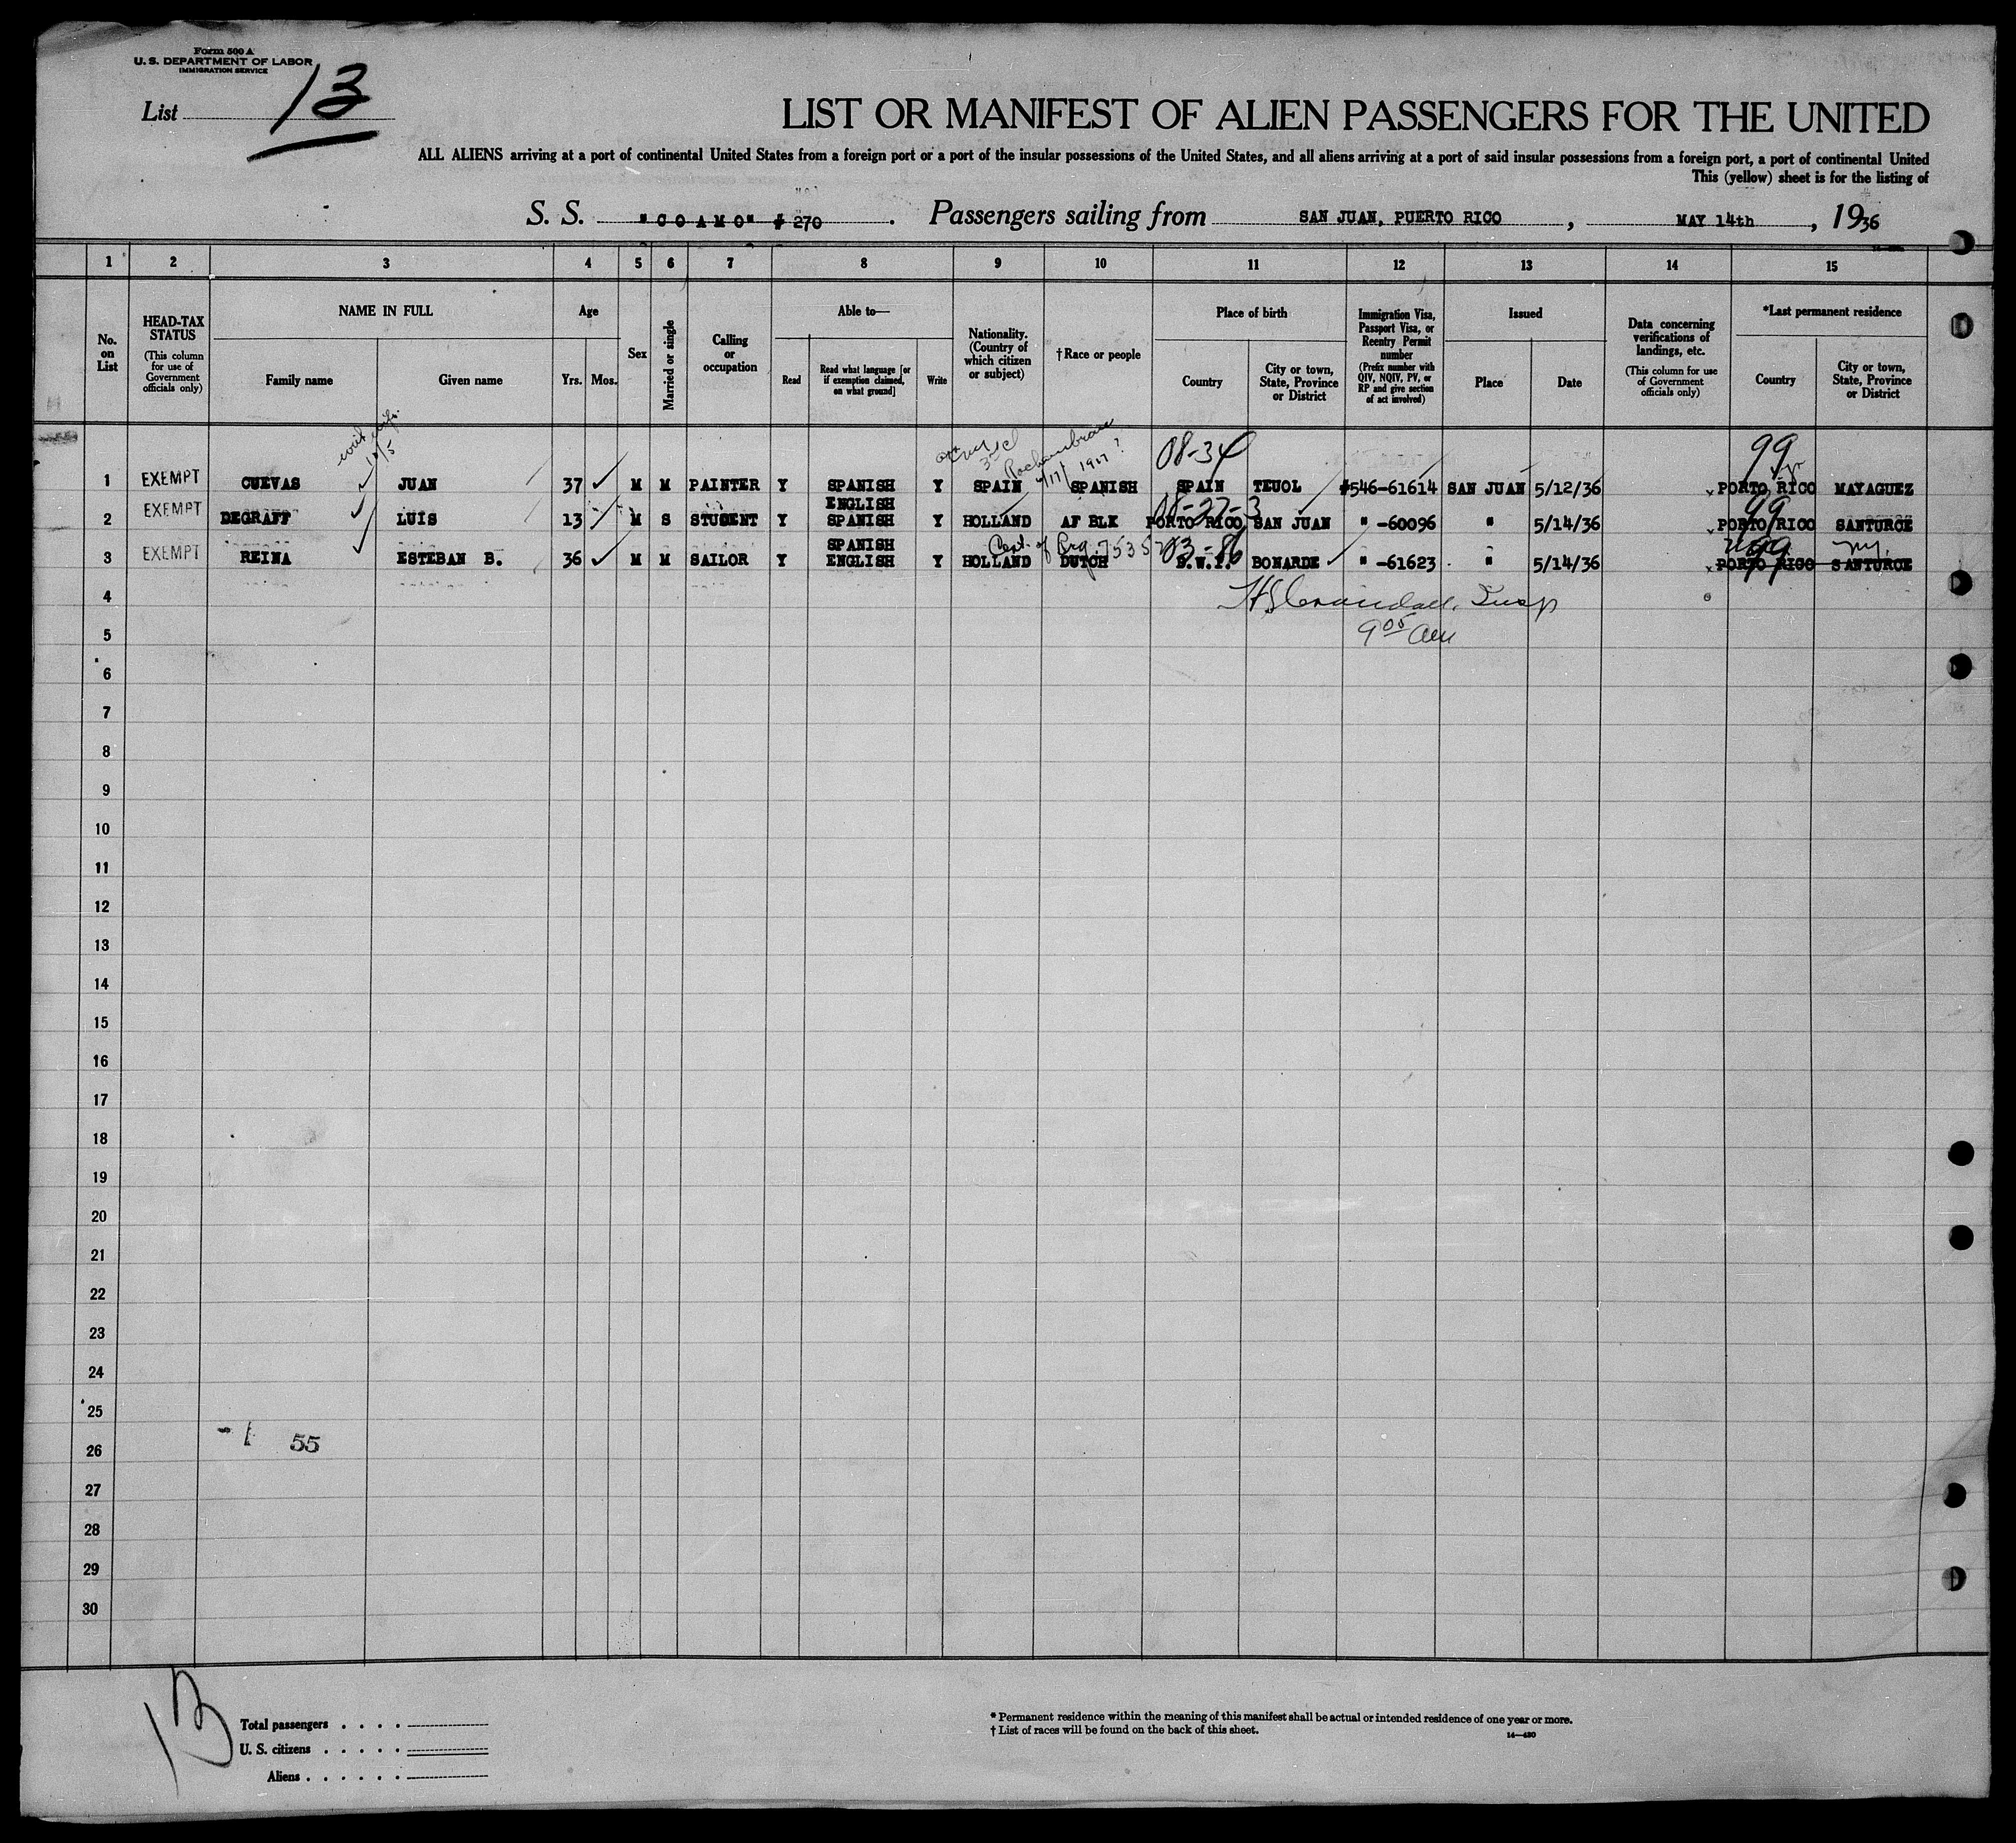 Form 500 A
U. S. DEPARTMENT OF LABOR
IMMIGRATION SERVICE
List 13
LIST OR MANIFEST OF ALIEN PASSENGERS FOR THE UNITED
ALL ALIENS arriving at a port of continental United States from a foreign port or a port of the insular possessions of the United States, and all aliens arriving at a port of said insular possessions from a foreign port, a port of continental United
This (yellow) sheet is for the listing of
S. S. "COAMO" # 270 . Passengers sailing from SAN JUAN, PUERTO RICO , MAY 14th , 1936
1 2 3 4 5 6 7 8 9 10 11 12 13 14 15
No. on List
HEAD-TAX STATUS (This column for use of Government officials only)
NAME IN FULL
Family name
Given name
Age
Yrs. Mos.
Sex
Married or single
Calling or occupation
Able to—
Read
Read what language [or if exemption claimed, on what ground]
Write
Nationality. (Country of which citizen or subject)
†Race or people
Place of birth
Country
City or town, State, Province or District
Immigration Visa, Passport Visa, or Reentry Permit number (Prefix number with QIV, NQIV, PV, or RP and give section of act involved)
Issued
Place
Date
Data concerning verifications of landings, etc. (This column for use of Government officials only)
*Last permanent residence
Country
City or town, State, Province or District
3rd cl
Rochambeau 1917?
08-34 99
1 EXEMPT CUEVAS JUAN 37 M M PAINTER Y SPANISH Y SPAIN SPANISH SPAIN TEUOL #546-61614 SAN JUAN 5/12/36 PORTO RICO MAYAGUEZ
08-27-3 99
2 EXEMPT DEGRAFF LUIS 13 M S STUDENT Y ENGLISH SPANISH Y HOLLAND AF BLK PORTO RICO SAN JUAN " -60096 " 5/14/36 PORTO RICO SANTURCE
Cert. of Reg. 03-86 99 N.Y.
3 EXEMPT REINA ESTEBAN B. 36 M M SAILOR Y SPANISH ENGLISH Y HOLLAND DUTCH D.W.I. BONARDE " -61623 " 5/14/36 PORTO RICO SANTURCE
4
Crandall, Insp
5
9 05 AM
6
7
8
9
10
11
12
13
14
15
16
17
18
19
20
21
22
23
24
25
26
55
27
28
29
30
13
Total passengers
U. S. citizens
Aliens
* Permanent residence within the meaning of this manifest shall be actual or intended residence of one year or more.
† List of races will be found on the back of this sheet.
14—430